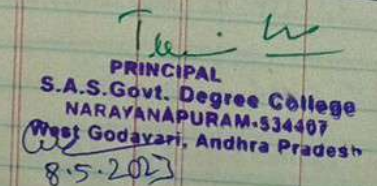 PRINCIPAL
S.A.S.Govt. Degree College
NARAYANAPURAM-534407
West Godavari, Andhra Pradesh
8.5.2023